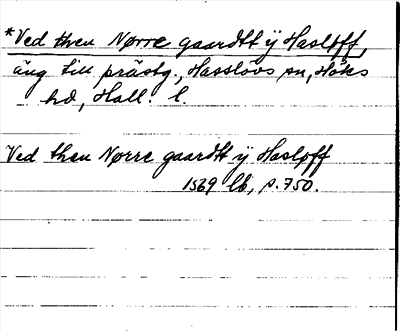 *Ved then Nørre gaardtt ÿ Hasløff,
äng till prästg., Hasslövs sn, Höks
hd, Hall. l.
Ved then Nørre gaardtt ÿ Hasløff
1569 lb, p. 750.